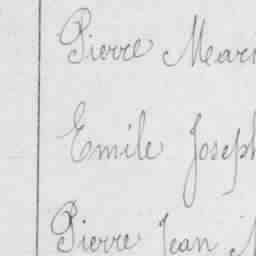 Pierre Mar
Emile Joseph
Pierre Jean